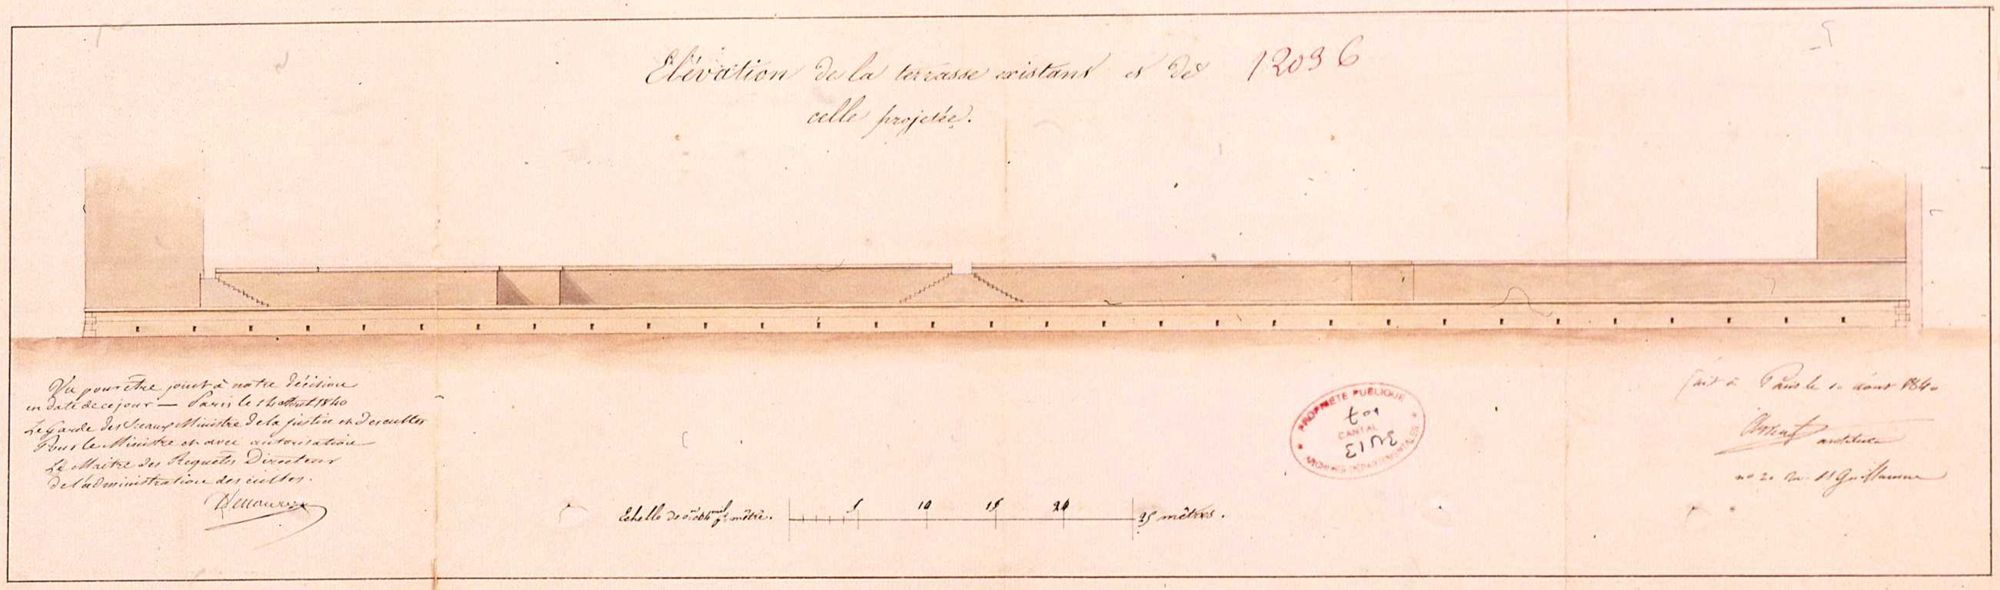 Elévation de la terrasse existant et de
celle projetée.
12036
Vu pour être joint à notre décision
en date de ce jour — Paris le 14 Aout 1840
Le Garde des Sceaux Ministre de la justice et des cultes
Pour le Ministre et avec autorisation
Le Maître des Requêtes Directeur
de l'administration des cultes.
PROPRIÉTÉ PUBLIQUE
107
CANTAL
3V13
ARCHIVES DÉPARTEMENTALES
fait à Paris le 10 aout 1840
architecte
n° 20 St Guillaume
Echelle de mètre.
5 10 15 20 25 mètres.